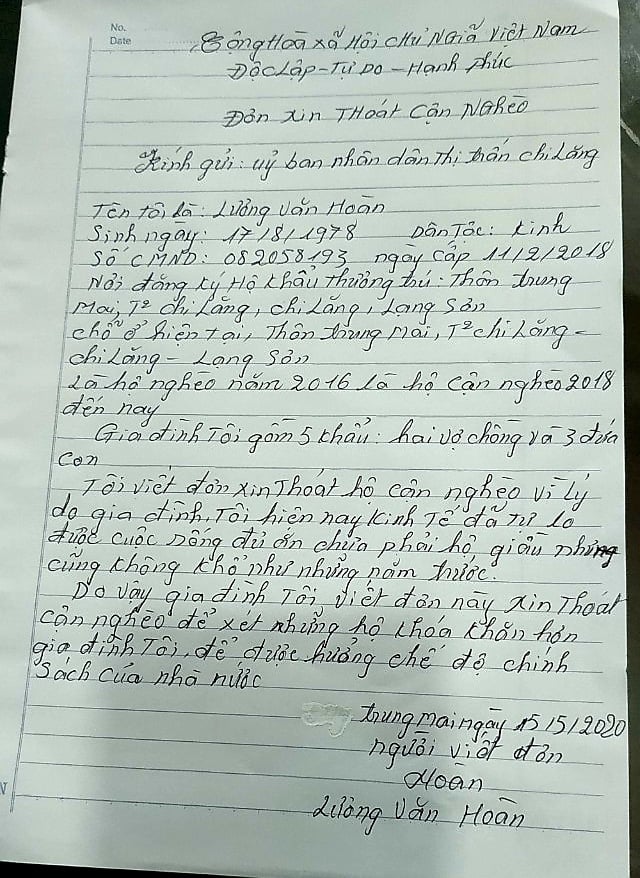 No.
Date
Cộng Hoà xã Hội chủ Nghĩa Việt Nam
Độc Lập - Tự Do - Hạnh phúc
Đơn xin THoát Cận NGhèo
Kính gửi: uỷ ban nhân dân Thị trấn chi Lăng
Tên tôi là: Lương Văn Hoàn
Sinh ngày: 17/8/1978 Dân Tộc: kinh
Số CMND: 082058193 ngày cấp 11/2/2018
Nơi đăng ký Hộ khẩu thường trú: Thôn trung
Mai, T² chi Lăng, chi Lăng, Lạng Sơn
chỗ ở hiện tại, Thôn trung Mai, T² chi Lăng -
chi Lăng - Lạng Sơn
Là hộ nghèo năm 2016 là hộ cận nghèo 2018
đến nay
Gia đình Tôi gồm 5 khẩu: hai vợ chồng và 3 đứa
con
Tôi viết đơn xin Thoát hộ cân nghèo vì lý
do gia đình, Tôi hiện nay kinh Tế đã tự lo
được cuộc sông đủ ăn chưa phải hộ giầu nhưng
cũng không khổ như những năm trước.
Do vậy gia đình Tôi viết đơn này xin Thoát
cận nghèo để xét những hộ khóa khăn hơn
gia đình Tôi, để được hưởng chế độ chính
Sách của nhà nước
trung mai ngày 15/5/2020
người viết đơn
Hoàn
Lương Văn Hoàn